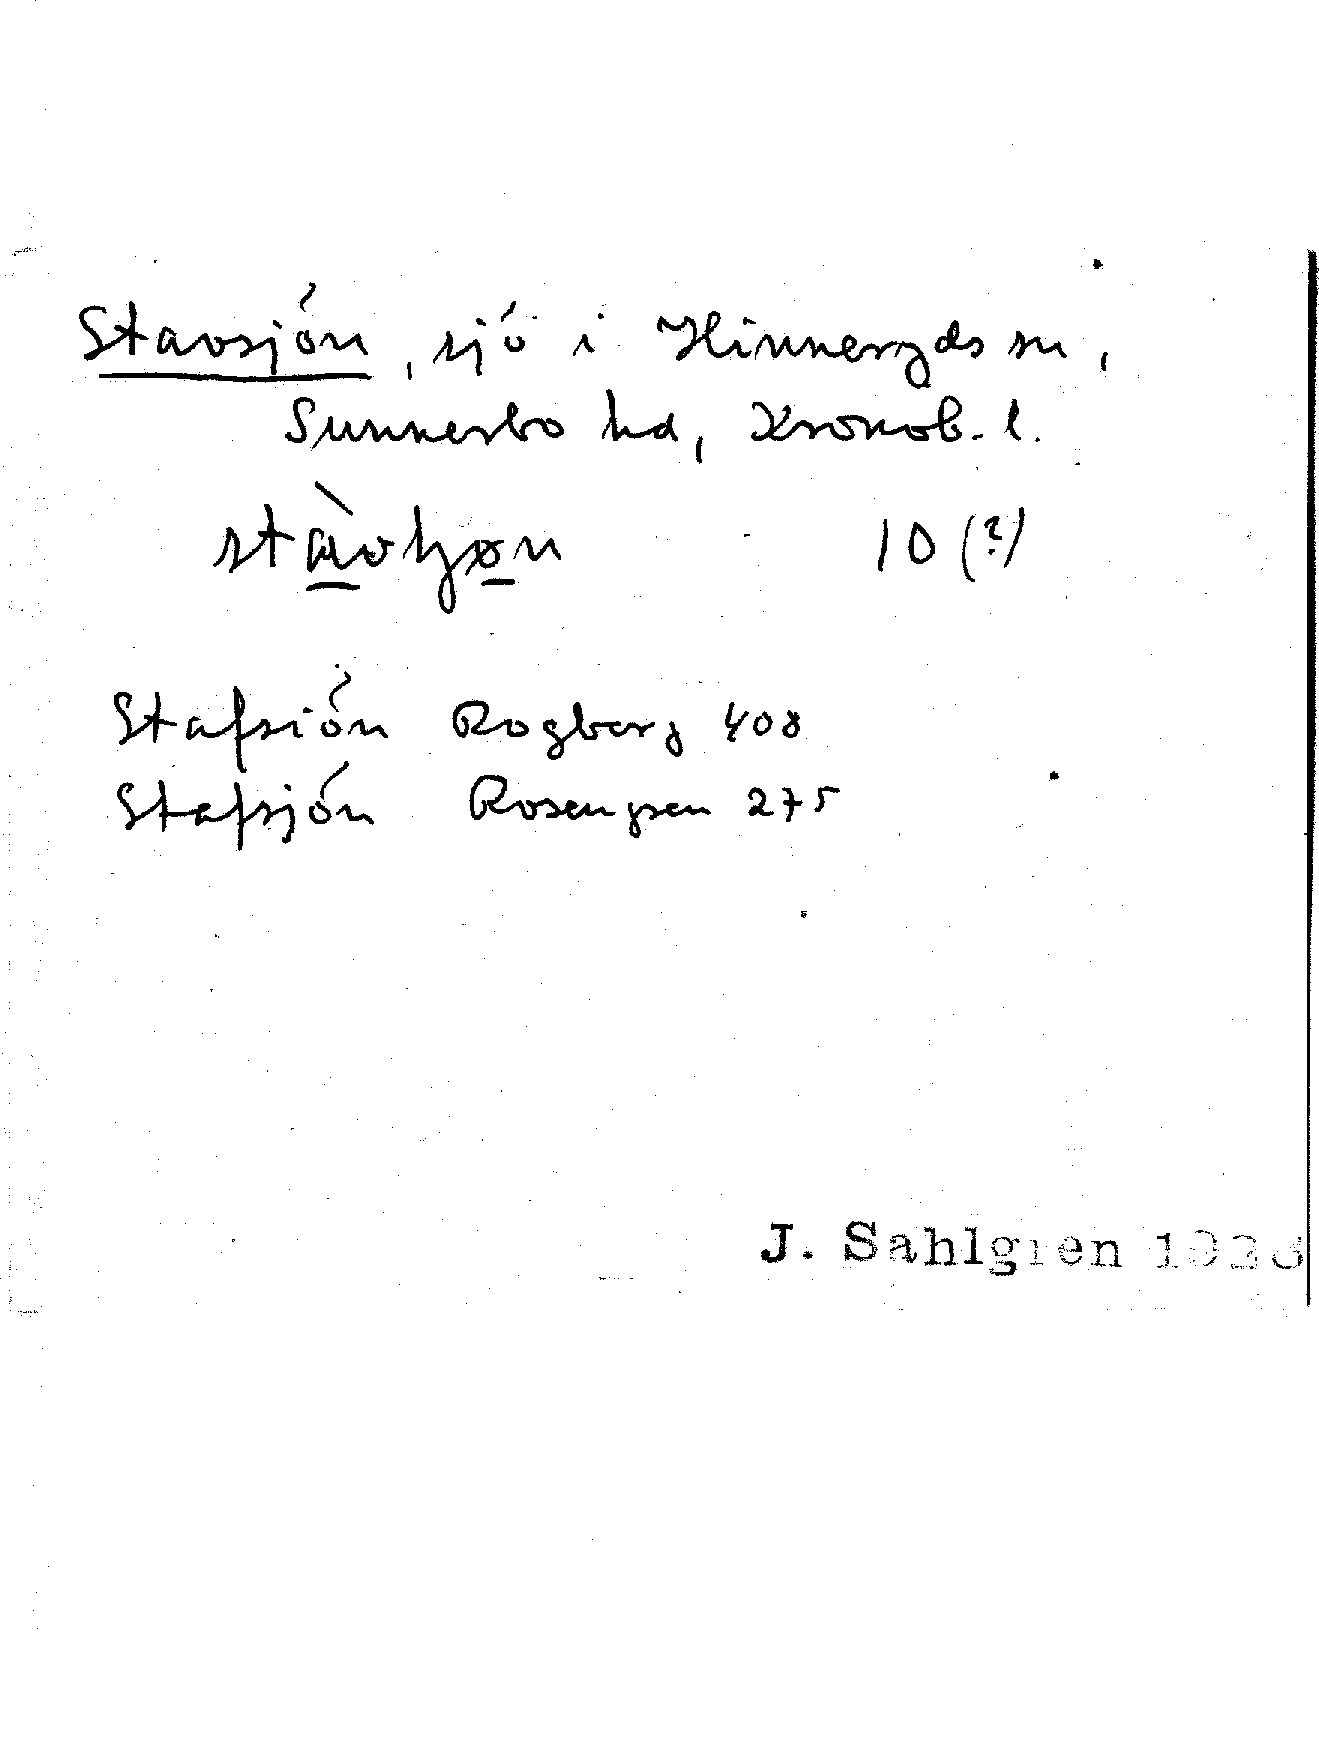 Stavsjön, sjö i Hinneryds sn,
Sunnerbo hd, Kronob. l.
10 (?)
Stafsiön Rogberg 408
Stafsjön Rosengren 275
J. Sahlgren